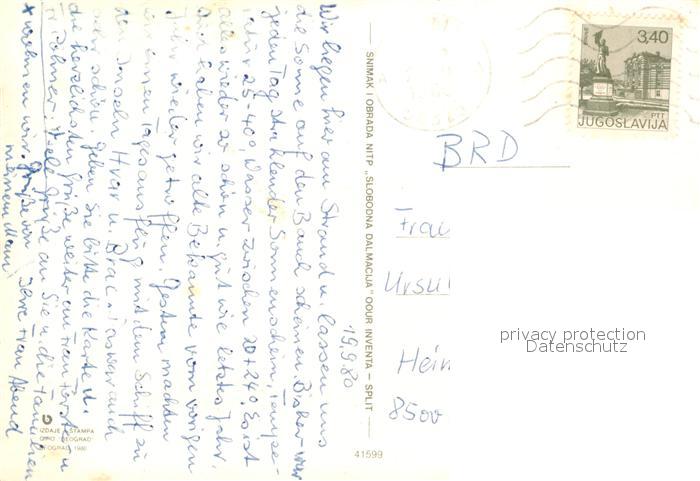 19.9.80
Wir liegen hier am Strand u. lassen uns
die Sonne auf den Bauch scheinen. Bisher war
jeden Tag strahlender Sonnenschein, Tempe-
ratur 25-40°, Wasser zwischen 20 + 24°. Es ist
alles wieder so schön u. gut wie letztes Jahr.
Auch haben wir alte Bekannte vom vorigen
Jahr wieder getroffen. Gestern machten
wir einen Tagesausflug mit dem Schiff zu
den Inseln Hvar u. Brac. Es war auch
sehr schön. Geben Sie bitte die Karte u.
die herzlichsten Grüße weiter an Frau
Viele Grüße an Sie u. die Familien
wohnen wir. Grüße von Ihrer Frau Abend
meinem Mann
SNIMAK I OBRADA NITP „SLOBODNA DALMACIJA" OOUR INVENTA – SPLIT
IZDAJE I ŠTAMPA
GIRO "BEOGRAD"
BEOGRAD 1980
41599
3,40
PTT
JUGOSLAVIJA
BRD
Frau
Ursul
Hein
8500
privacy protection
Datenschutz